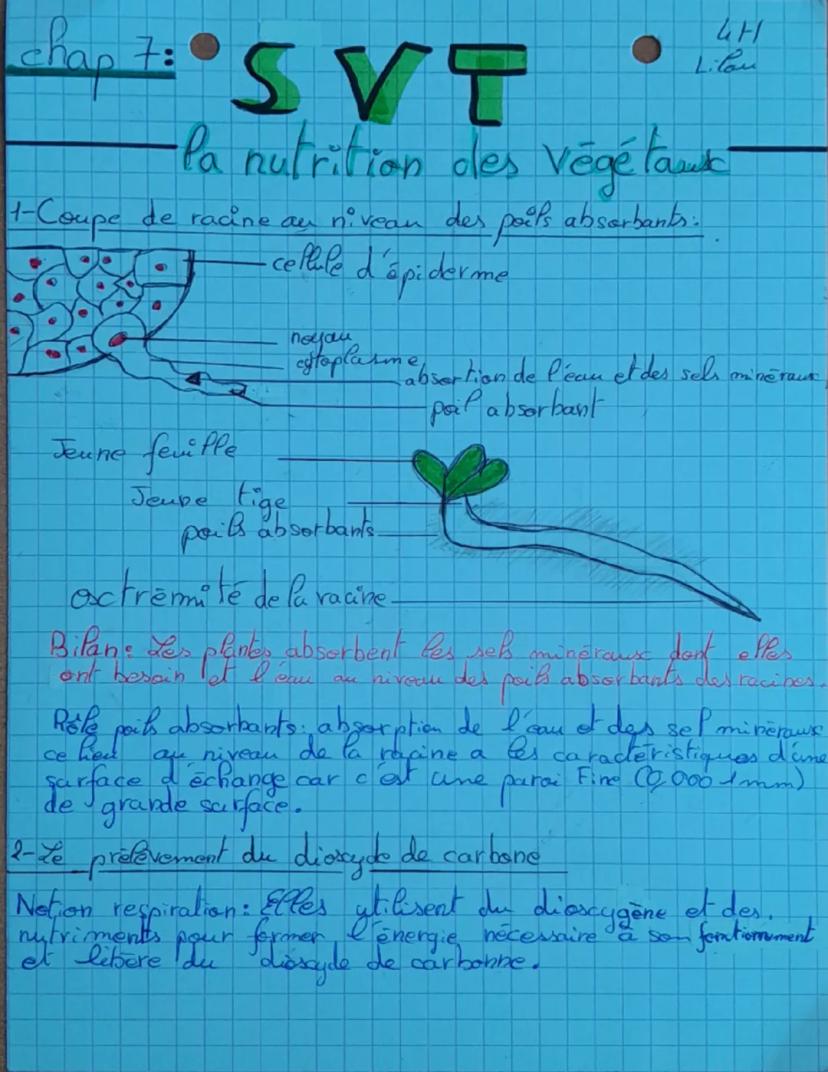 chap 7:
SVT
4H
Lilou
la nutrition des végétaux
1-Coupe de racine au niveau des poils absorbants:
cellule d'épiderme
noyau
cytoplasme
absortion de l'eau et des sels minéraux
poil absorbant
Jeune feuille
Jeune tige
poils absorbants
extrémité de la racine
Bilan: Les plantes absorbent les sels minéraux dont elles
ont besoin et l'eau au niveau des poils absorbants des racines.
Rôle poils absorbants: absorption de l'eau et des sel minéraux
ce lieu au niveau de la racine a les caractéristiques d'une
surface d'échange car c'est une paroi fine (0,0001mm)
de grande surface.
2-Le prélèvement du dioxyde de carbone
Notion respiration: Elles utilisent du dioxygène et des
nutriments pour former l'énergie nécessaire à son fonctionnement
et libère du dioxyde de carbonne.